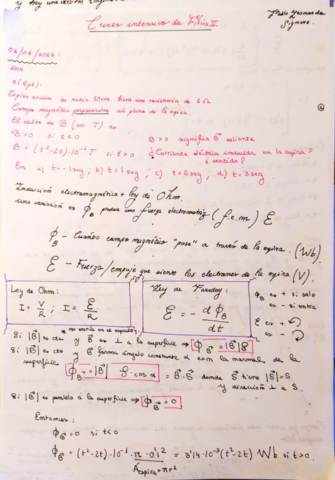 Curso intensivo de Física II
02/02/2022
2014
2 (1pt):
Espira circular de radio 10cm tiene una resistencia de 2 Ω
Campo magnético perpendicular al plano de la espira.
El valor de B (en T) es
B=0 si t<0 B>0 significa B⃗ saliente
B = (t²-2t)·10⁻³ T si t>0 ¿Corriente eléctrica inducida en la espira?
¿sentido?
En a) t=-1 seg; b) t=1 seg; c) t=2 seg; d) t=3 seg
Inducción electromagnética + ley de Ohm.
una variación de ϕ_B provoca una fuerza electromotriz (f.e.m) Ɛ
ϕ_B - Cuánto campo magnético "pasa" a través de la espira. (Wb).
Ɛ - Fuerza/empuje que sienten los electrones de la espira (V).
Ley de Ohm:
I = V/R ; I = Ɛ/R
Ley de Faraday:
Ɛ = - dϕ_B/dt
ϕ_B es + si sale
es - si entra
Ɛ es + ↺
es - ↻
Si |B⃗| es cte y B⃗ es ⊥ a la superficie ⇒ ϕ_B = |B⃗|·S
Si |B⃗| es cte y B⃗ forma ángulo constante α con la normal de la
superficie ϕ_B = |B⃗|·S·cos α = B⃗·S⃗ donde S⃗ tiene |S⃗|=S
y dirección ⊥ a S.
Si |B⃗| es paralelo a la superficie ⇒ ϕ_B = 0
Entonces:
ϕ_B = 0 si t<0
ϕ_B = (t²-2t)·10⁻³·π·0'1² = 3'14·10⁻⁵(t²-2t) Wb si t>0.
A_espira = πr²